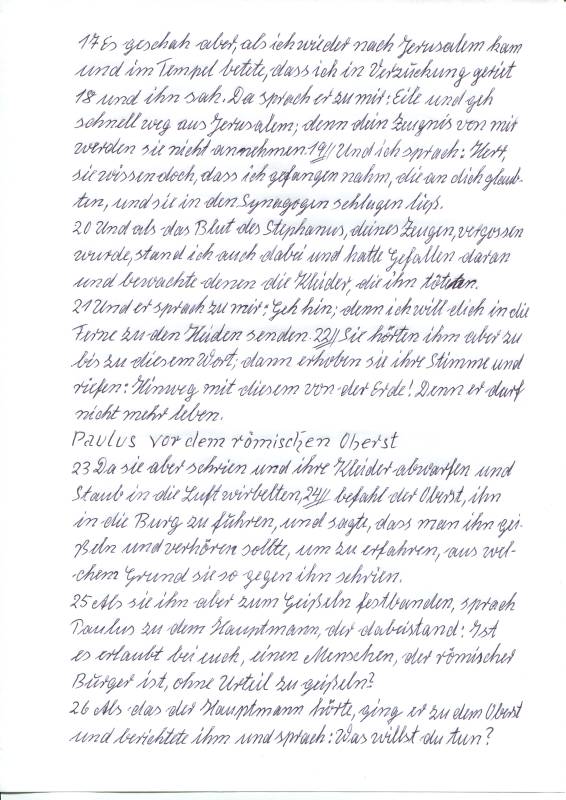 17 Es geschah aber, als ich wieder nach Jerusalem kam
und im Tempel betete, dass ich in Verzückung geriet
18 und ihn sah. Da sprach er zu mir: Eile und geh
schnell weg aus Jerusalem; denn dein Zeugnis von mir
werden sie nicht annehmen. 19// Und ich sprach: Herr,
sie wissen doch, dass ich gefangen nahm, die an dich glaub-
ten, und sie in den Synagogen schlagen ließ.
20 Und als das Blut des Stephanus, deines Zeugen, vergossen
wurde, stand ich auch dabei und hatte Gefallen daran
und bewachte denen die Kleider, die ihn töteten.
21 Und er sprach zu mir: Geh hin; denn ich will dich in die
Ferne zu den Heiden senden. 22// Sie hörten ihm aber zu
bis zu diesem Wort; dann erhoben sie ihre Stimme und
riefen: Hinweg mit diesem von der Erde! Denn er darf
nicht mehr leben.
Paulus vor dem römischen Oberst
23 Da sie aber schrien und ihre Kleider abwarfen und
Staub in die Luft wirbelten, 24// befahl der Oberst, ihn
in die Burg zu führen, und sagte, dass man ihn gei-
ßeln und verhören sollte, um zu erfahren, aus wel-
chem Grund sie so gegen ihn schrien.
25 Als sie ihn aber zum Geißeln festbanden, sprach
Paulus zu dem Hauptmann, der dabeistand: Ist
es erlaubt bei euch, einen Menschen, der römischer
Bürger ist, ohne Urteil zu geißeln?
26 Als das der Hauptmann hörte, ging er zu dem Oberst
und berichtete ihm und sprach: Was willst du tun?